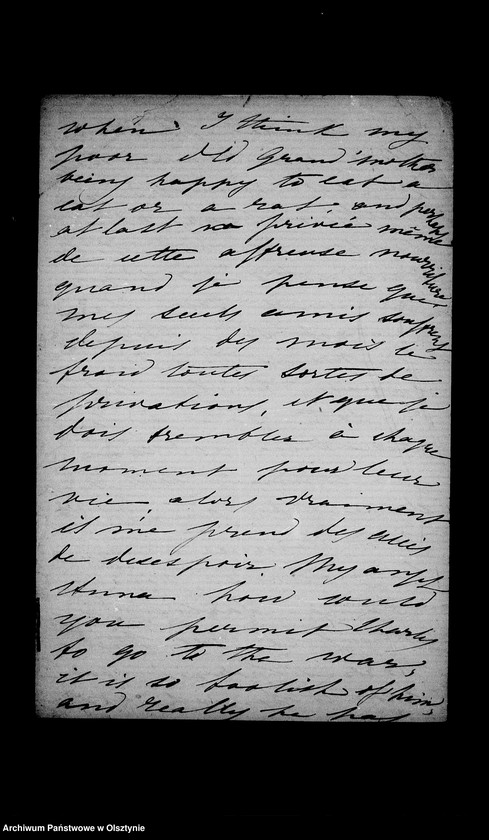 when I think my
poor old Grand'mother
being happy to eat a
cat or a rat and perhaps
at last privée même
de cette affreuse nourriture
quand je pense que
mes seuls amis souffrent
depuis des mois le
froid toutes sortes de
privations, et que je
dois trembler à chaque
moment pour leur
vie alors vraiment
il me prend des
de desespoir. My angel
Anna how could
you permit Charles
to go to the war,
it is so foolish of him,
and really he has
Archiwum Państwowe w Olsztynie